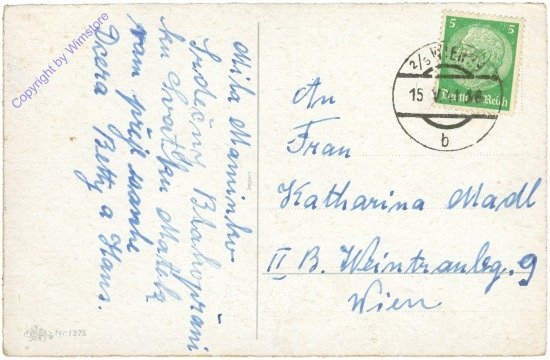 Copyright by Wimstore
Milá Maminko
Srdečné Blahopřání
ku Svátku Matek
vam přejí
Dcera Betty a Hans.
Nr. 1275
5 5
Deutsches Reich
WIEN
15. V.
b
An
Frau
Katharina Madl
II B. Weintraubg. 9
Wien